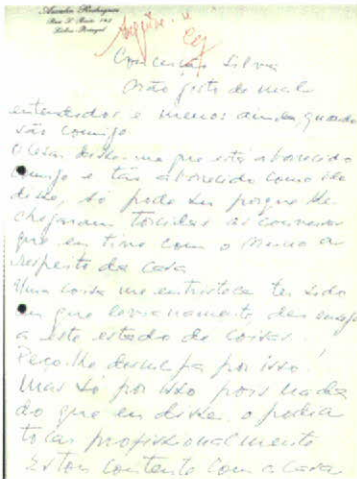 Amália Rodrigues
Rua S. Bento 193
Lisboa - Portugal
Conceição Silva
Não gosto de mal
entendidos e menos ainda quando
são comigo
O César disse-me que está aborrecido
comigo e tão aborrecido como ele
disse, só pode ser porque lhe
chegaram torcidas as conversas
que eu tive com o Nuno a
respeito da casa
Uma coisa me entristece ter sido
eu que levianamente, deu
a este estado de coisas.
Peço-lhe desculpa por isso!
Mas só por isso pois nada
do que eu disse o podia
tocar profissionalmente
Estou contente com a casa